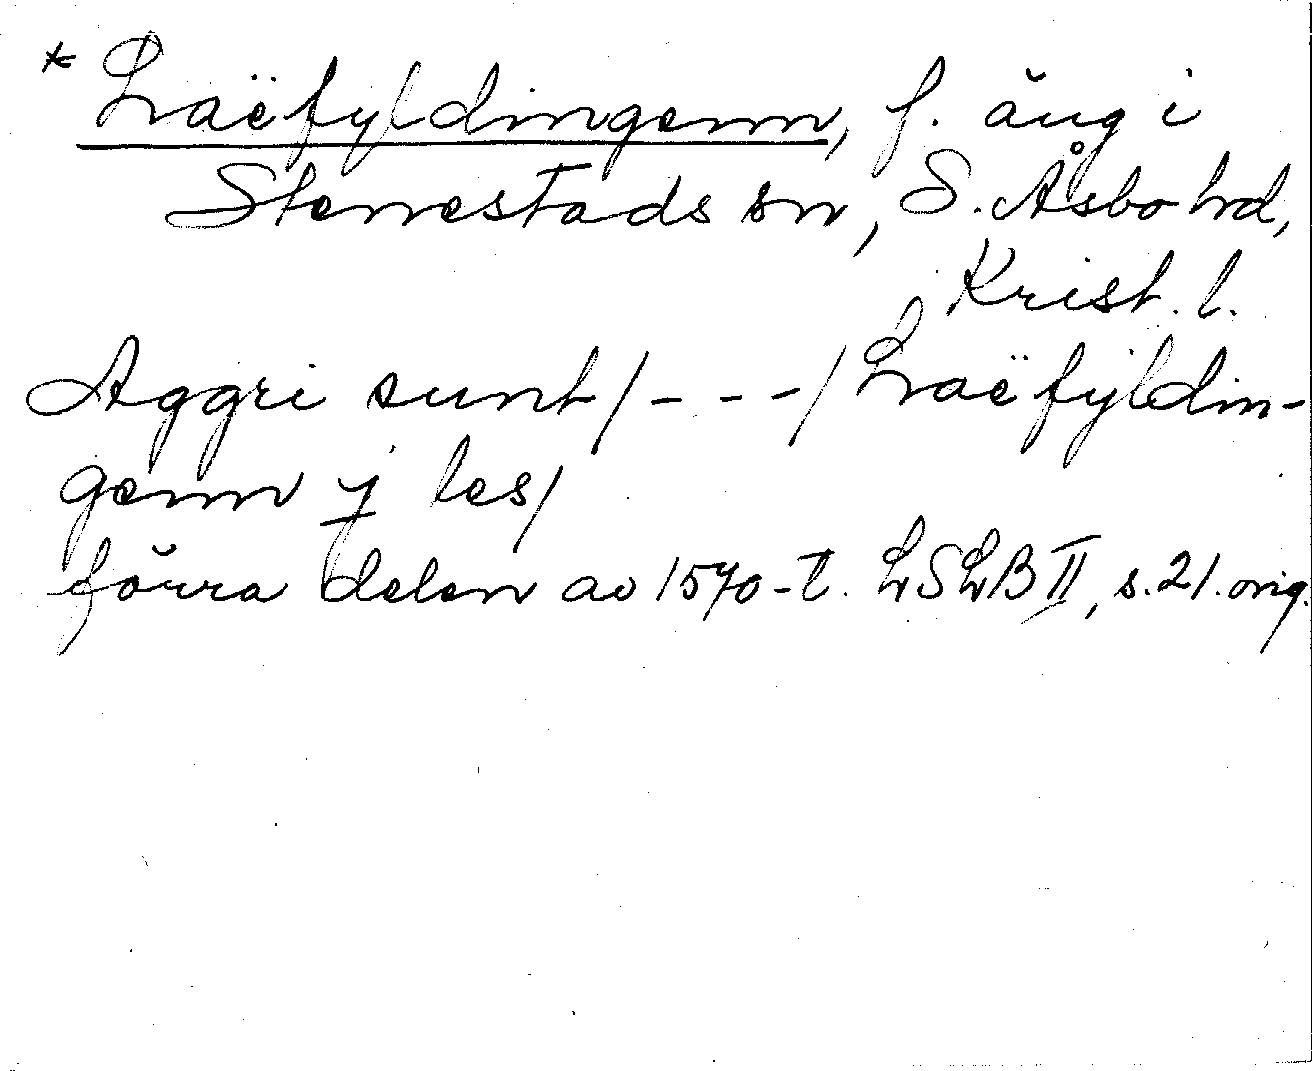 * Laëfyldingenn, f. äng i
Stenestads sn, S. Åsbo hd,
Krist. l.
Aggri sunt/---/Laëfyldin-
genn j les/
förra delen av 1570-t. LSLB II, s. 21. orig.